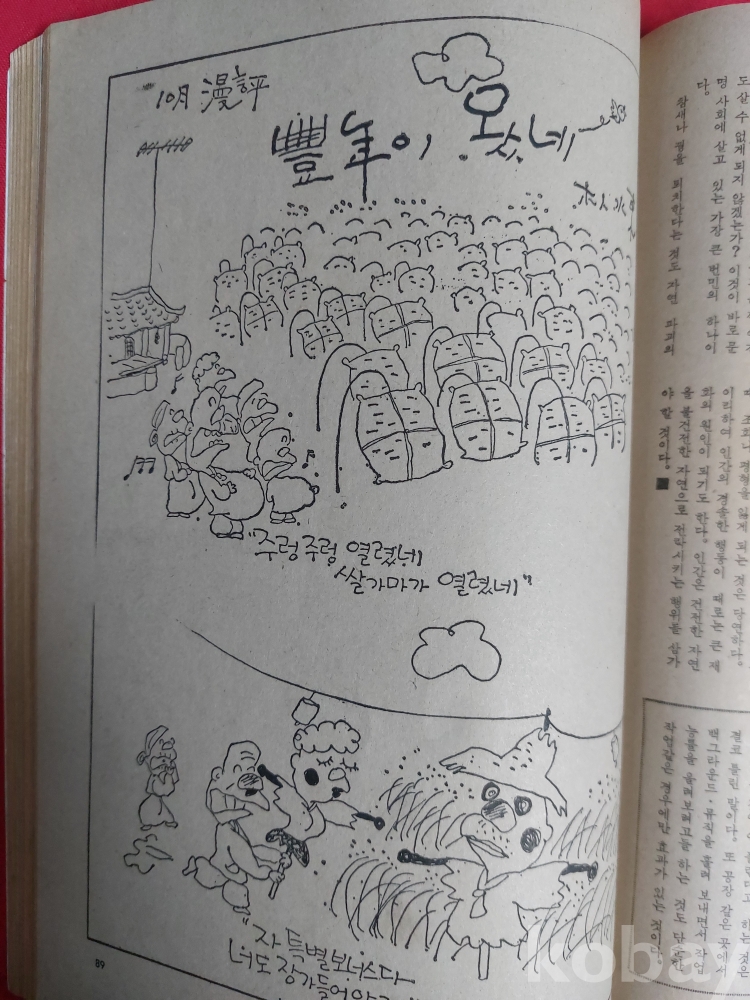 10月 漫評
豐年이 왔네
"주렁주렁 열렸네
쌀가마가 열렸네"
"자 특별보너스다
너도 장가들어야
89
도 살 수 없게 되지 않겠는가? 이것이 바로 문
명 사회에 살고 있는 가장 큰 번민의 하나이
다.
참새나 꿩을 퇴치한다는 것도 자연 파괴의
조화나 평형을 잃게 되는 것은 당연하다.
이리하여 인간의 경솔한 행동이 때로는 큰 재
화의 원인이 되기도 한다. 인간은 건전한 자연
을 불건전한 자연으로 전락시키는 행위를 삼가
야 할 것이다.
결로 풀린 탓이다. 또 공장 같은 곳에서
백그라운드·뮤직을 흘려 보내면서 작업
능률을 올려보려고들 하는 것도 단순한
작업같은 경우에만 효과가 있는 것이다.
koba